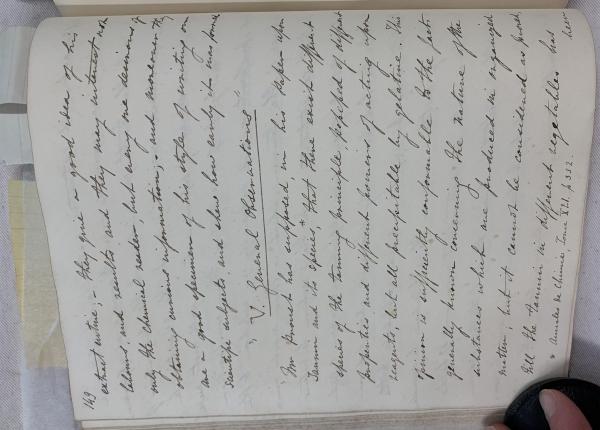 149
extract entire; — they give a good idea of his
labours and results and they may interest not
only the chemical reader, but every one desirous of
obtaining curious information, and moreover they
are a good specimen of his style of writing on
scientific subjects and shew how early it was formed
"V. General Observations
"Mr Proust has supposed in his paper upon
Tannin and its species,* that there exist different
species of the tanning principle possessed of different
properties and different powers of acting upon
reagents, but all precipitable by gelatine. This
opinion is sufficiently conformable to the facts
generally known concerning the nature of the
substances which are produced in organized
matter; but it cannot be considered as proved,
till the tannin in different vegetables has
* Annales de Chimie Tome XLI, p 332.
been